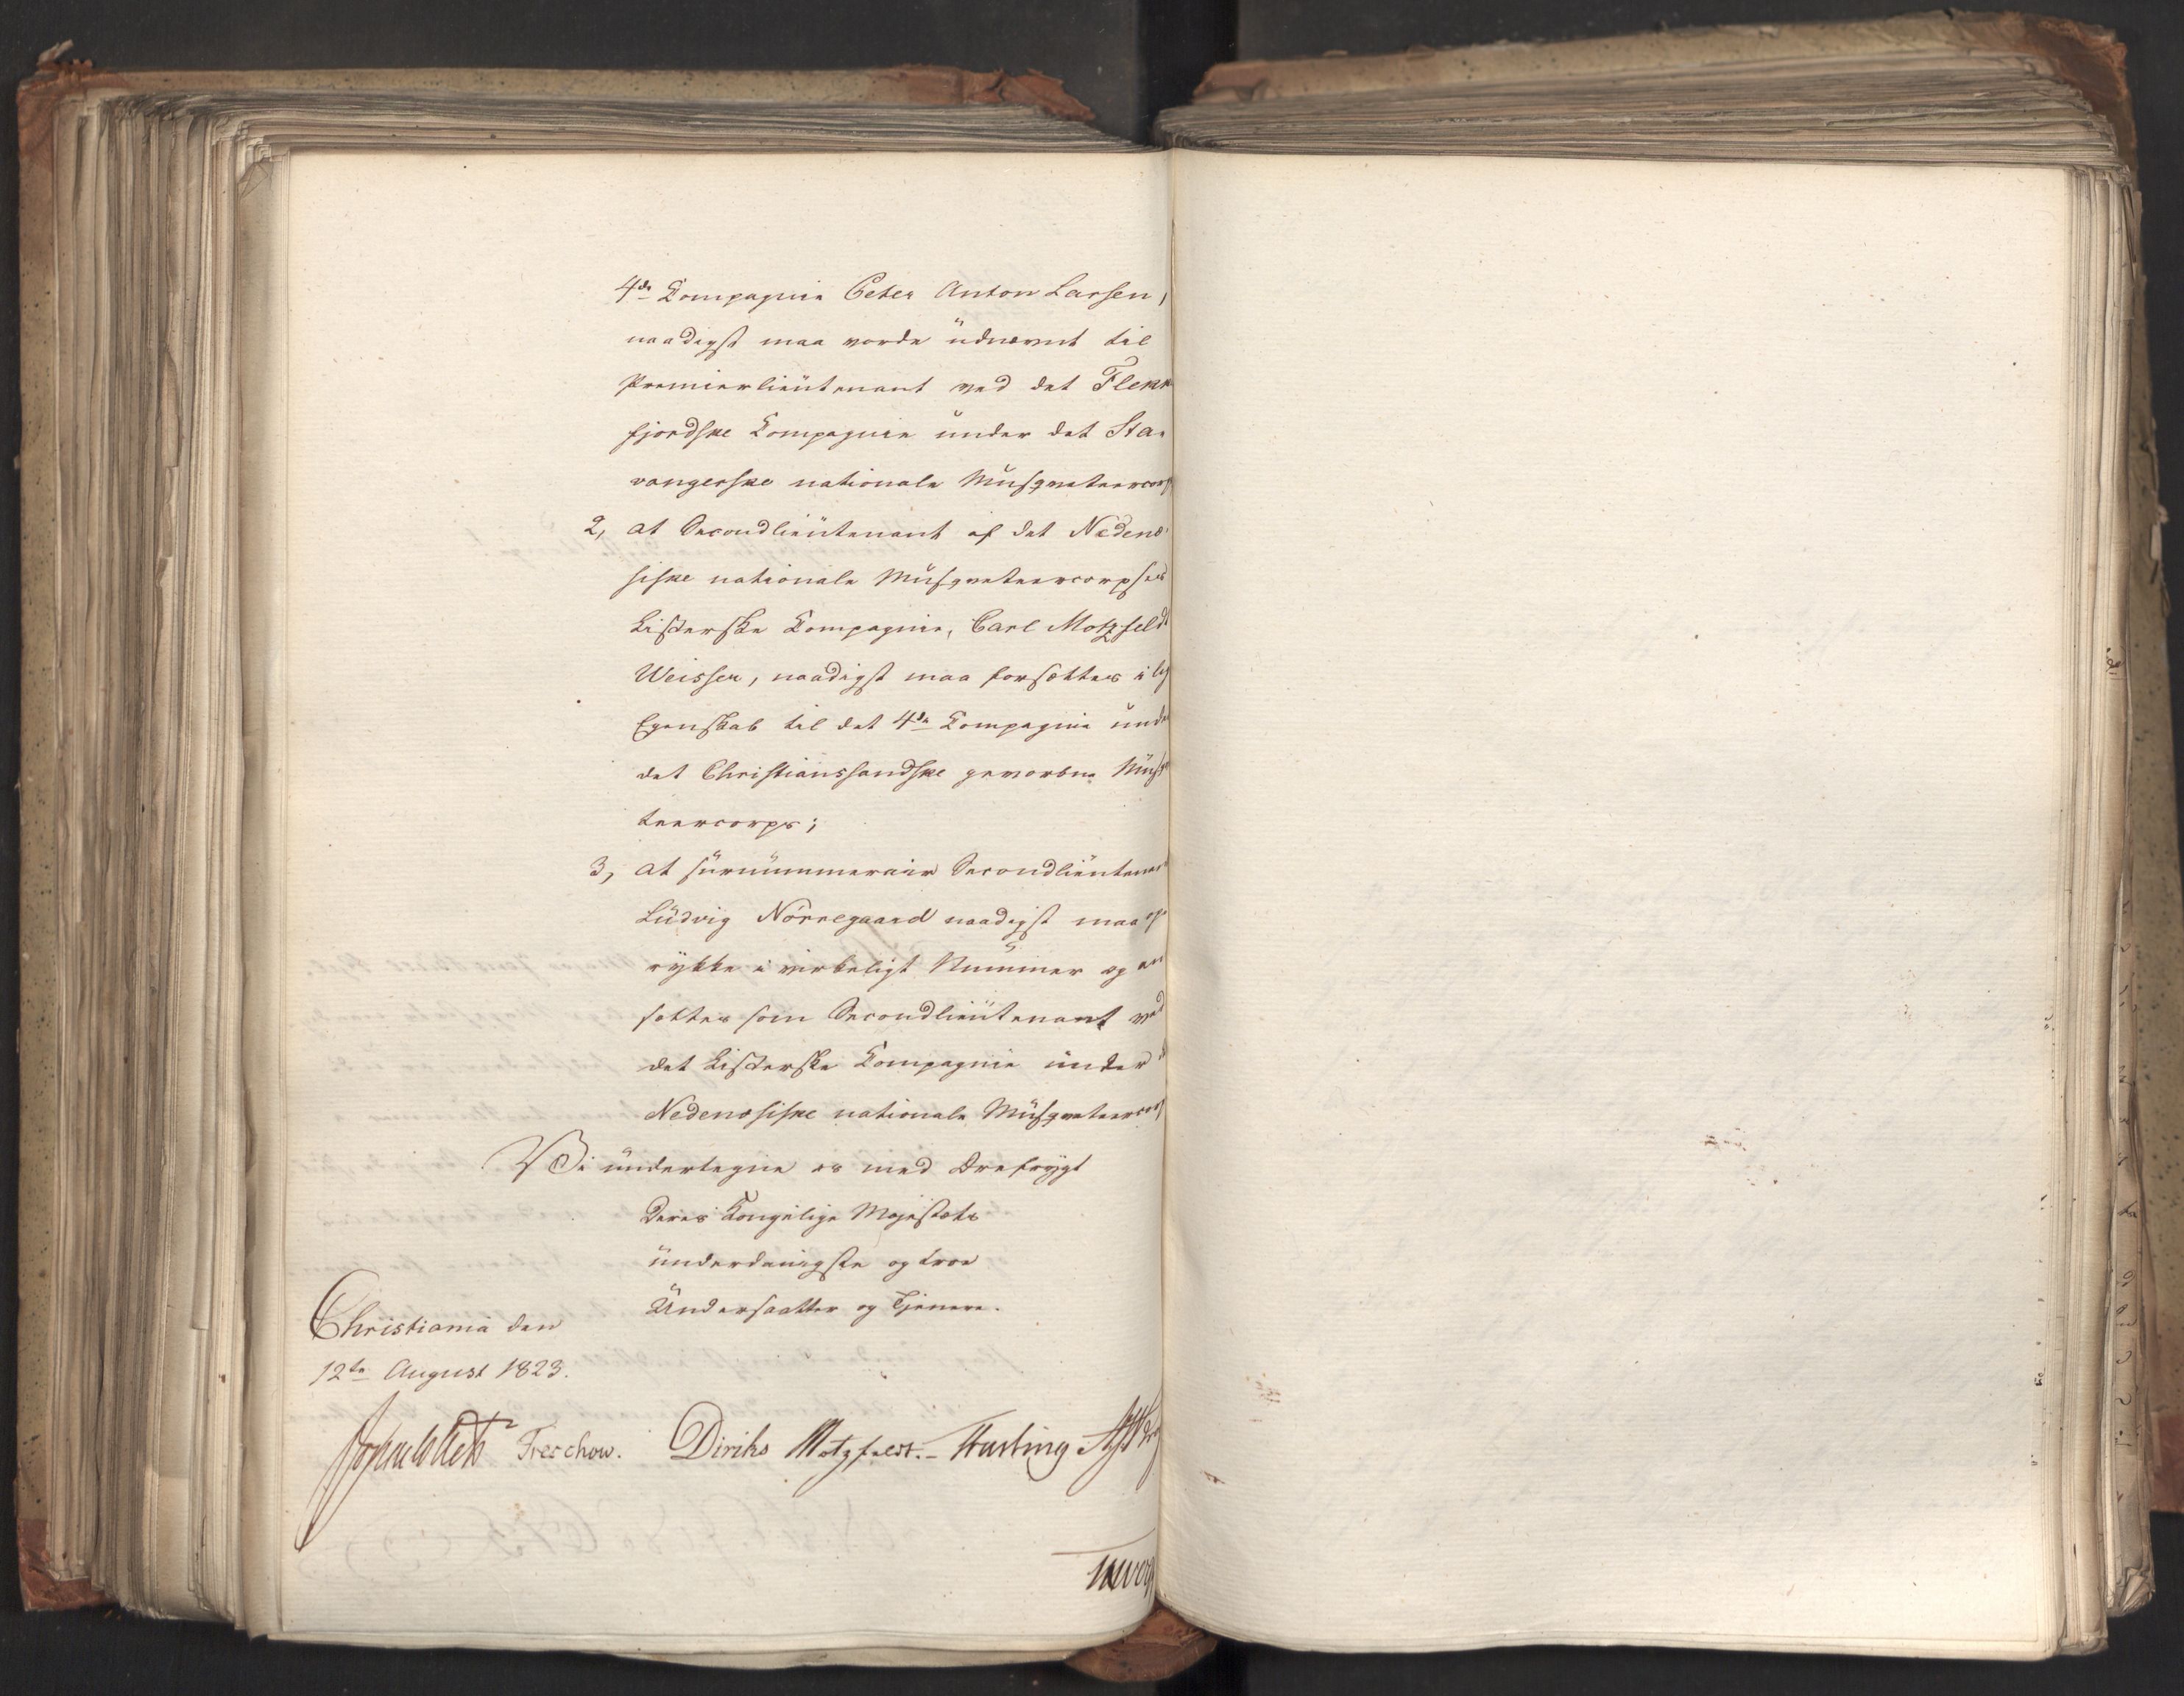 4de Compagnie Peter Anton Larsen,
naadigst maa vorde üdnævnt til
Premierlieütenant ved det Flekke
fjordske Compagnie ünder det Sta-
vangerske nationale Müsqveteercorps
2, at Secondlieütenant af det Nedenæ-
siske nationale Müsqveteercorpses
Listerske Compagnie, Carl Motzfeldt
Weisser, naadigst maa forsættes i
Egenskab til det 4de Compagnie ünder
det Christianssandske gevorbne Müsqve
teercorps;
3, at sürnümmerair Secondlieütenant
Lüdvig Nörregaard naadigst maa
rykke i virkeligt Nümmer og an
sættes som Secondlieütenant ved
det Listerske Compagnie ünder
Nedenæsiske nationale Müsqveteercorps
Vi ündertegne os med Ærefrygt
Deres Kongelige Majestæts
ünderdanigste og troe
Ündersaatter og Tjenere.
Christiania den
12te August 1823.
Treschow. Diriks Motzfeldt.-